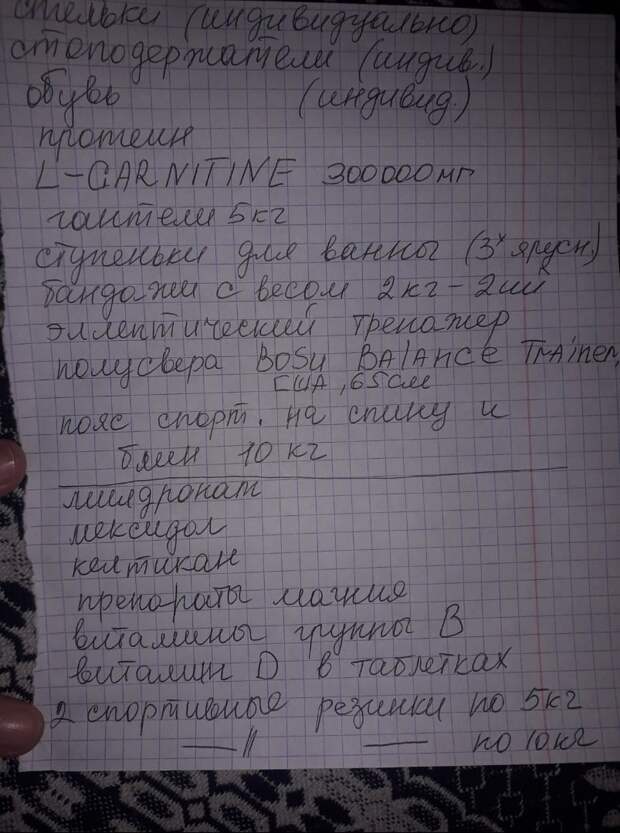 стельки (индивидуально)
стоподержатели (индив.)
обувь (индивид.)
протеин
L-CARNITINE 300000мг
гантели 5кг
ступеньки для ванны (3х ярусн.)
бандажи с весом 2кг - 2шт
эллептический тренажер
полусвера BOSU BAlANCE TRAiNER,
ЕША, 65см
пояс спорт. на спину и
блин 10 кг
милдронат
мексидол
келтикан
препараты магния
витамины группы В
витамин D в таблетках
2 спортивные резинки по 5кг
—— // —— по 10кг